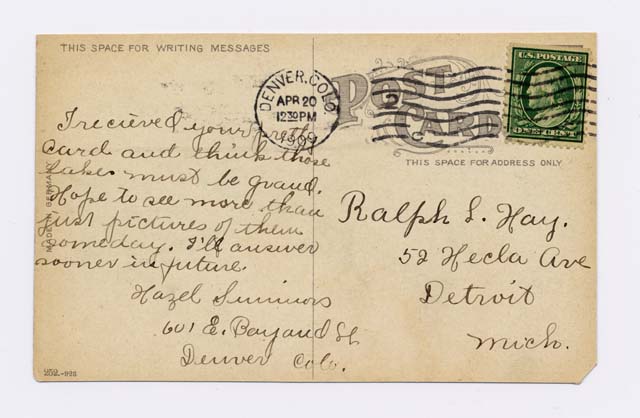 THIS SPACE FOR WRITING MESSAGES
POST CARD
THIS SPACE FOR ADDRESS ONLY
DENVER, COLO.
APR 20
12 30 PM
1909
2
U.S. POSTAGE
ONE CENT
I recieved your pretty
card and think those
lakes must be grand.
Hope to see more than
just pictures of them
someday. I'll answer
sooner in future.
Hazel Simmons
601 E. Bayaud St
Denver Colo.
Ralph L. Hay.
52 Hecla Ave
Detroit
Mich.
MADE IN GERMANY